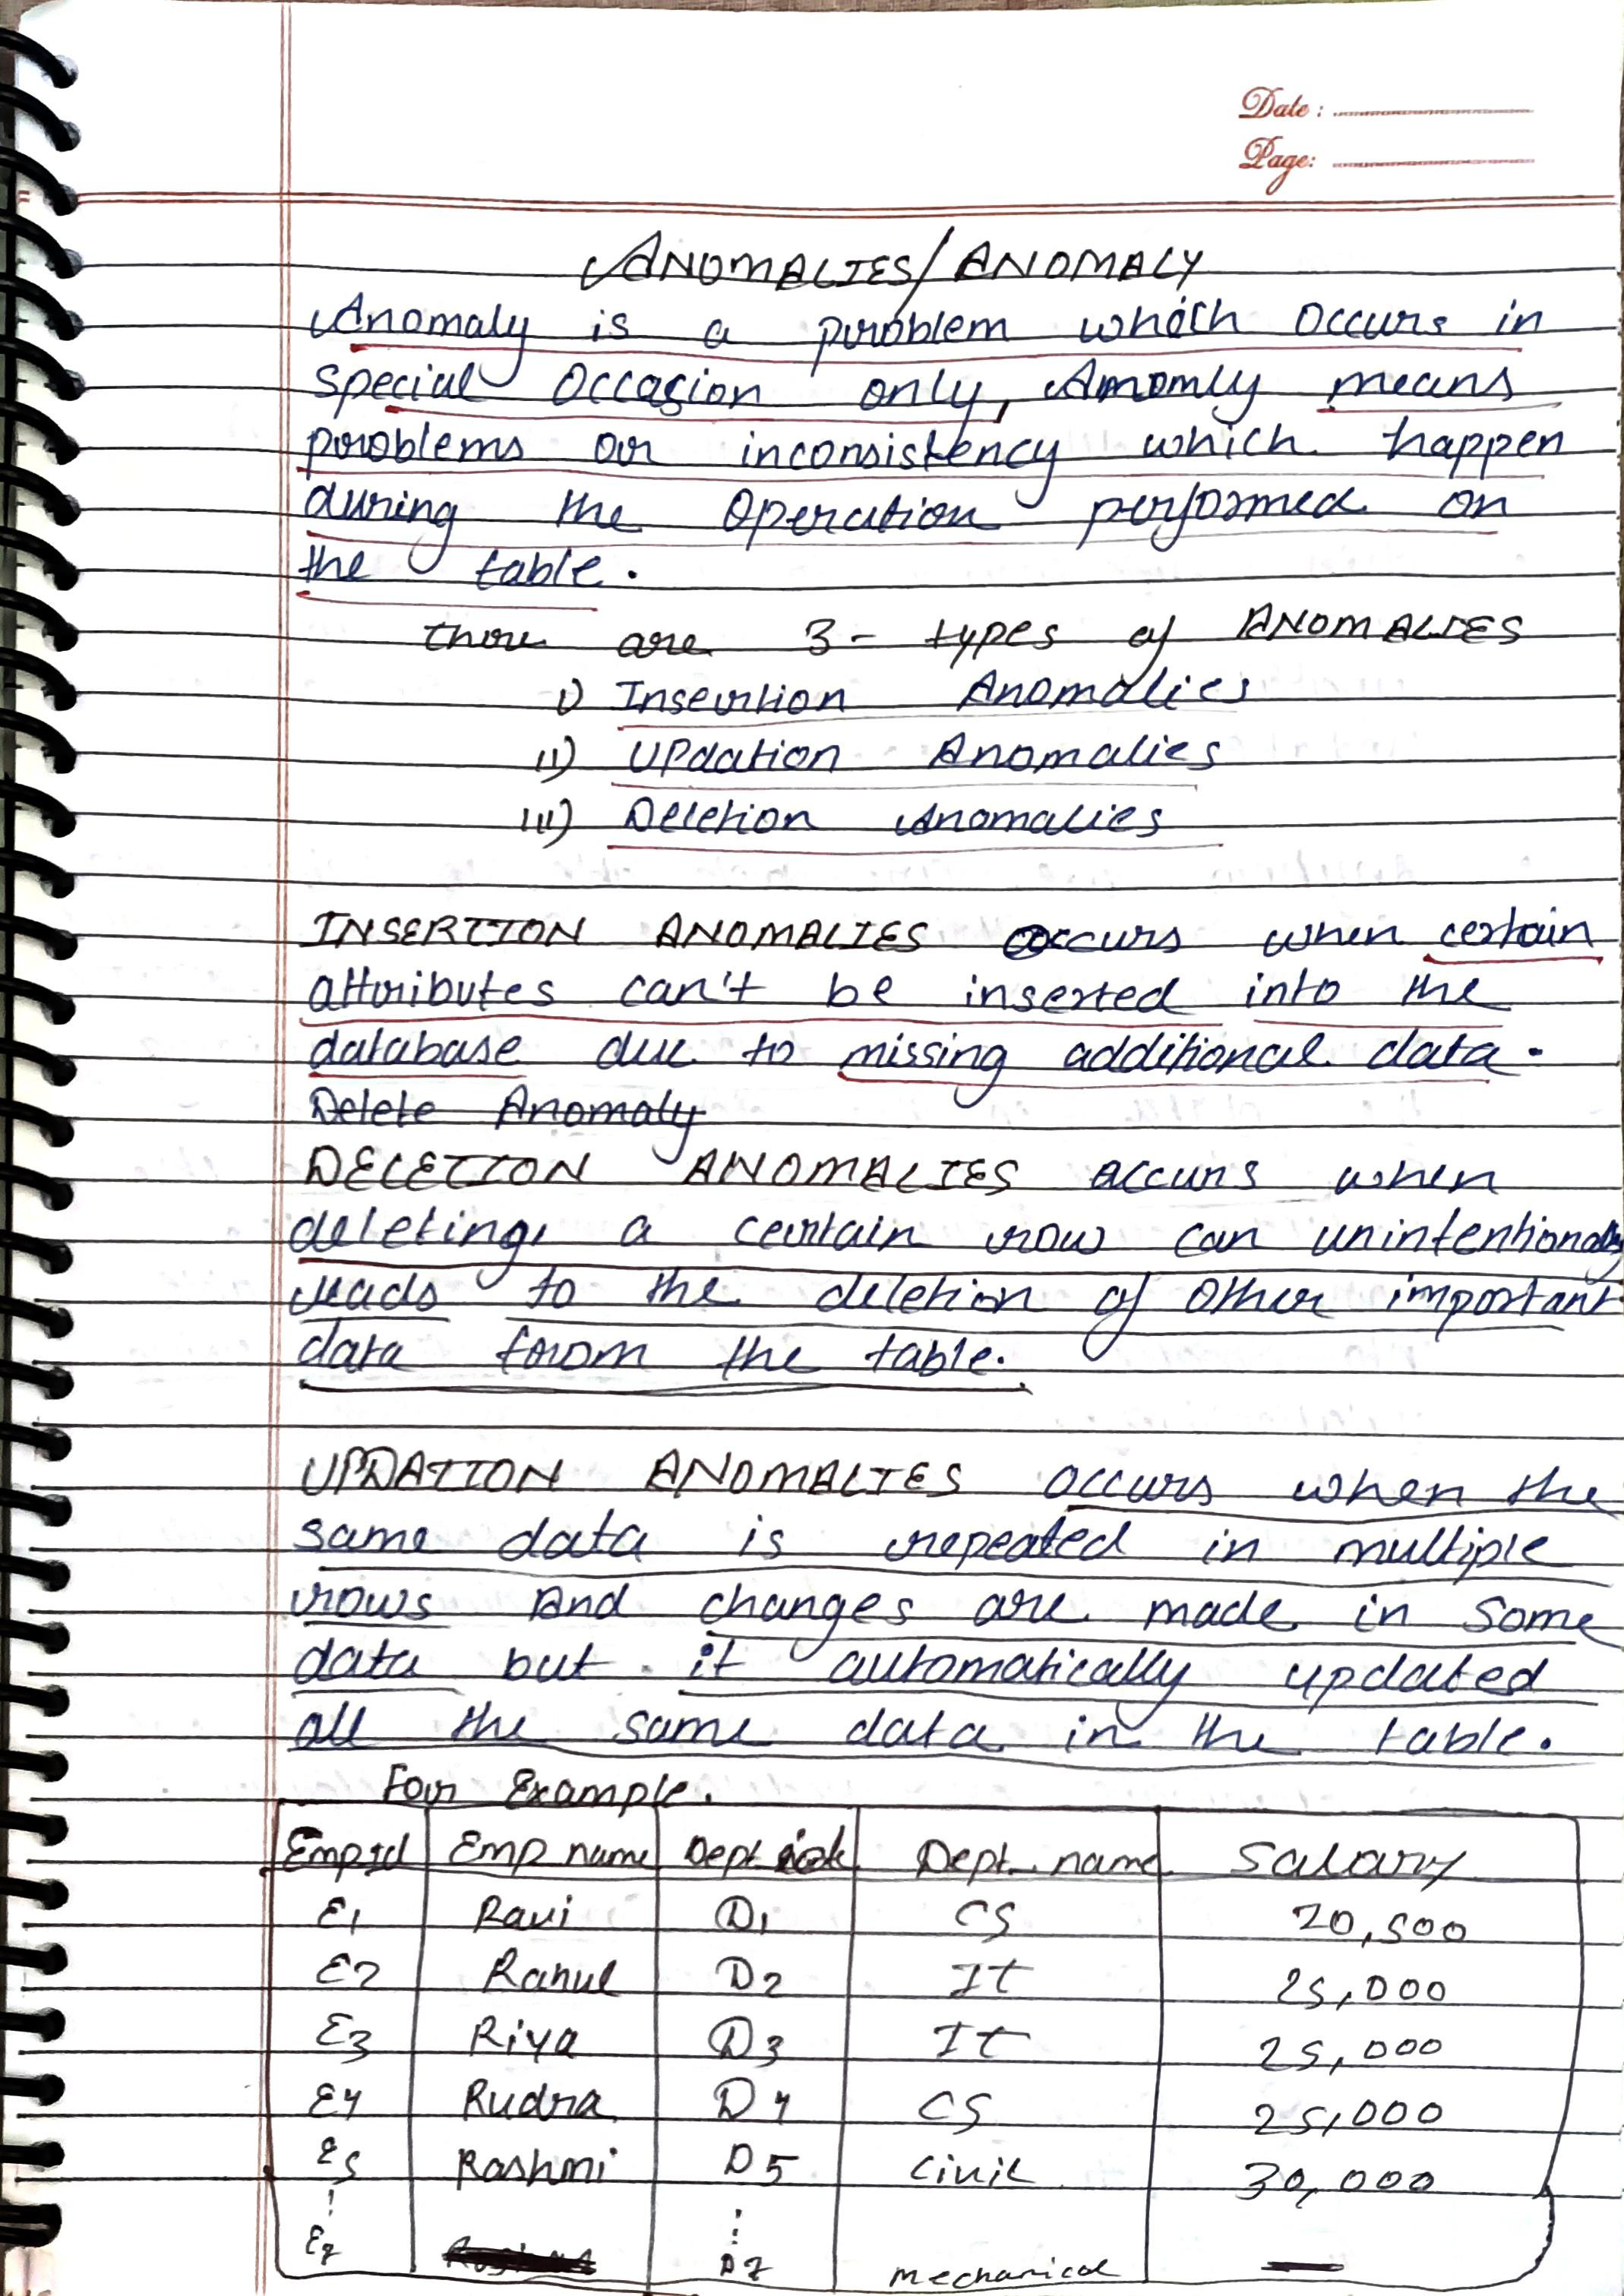 Date :
Page:
ANOMALIES/ANOMALY
Anomaly is a problem which occurs in
special occasion only, Anomly means
problems or inconsistency which happen
during the operation performed on
the table.
there are 3- types of ANOMALIES
i) Insertion Anomalies
ii) Updation Anomalies
iii) Deletion Anomalies
INSERTION ANOMALIES occurs when certain
attributes can't be inserted into the
database due to missing additional data.
Delete Anomaly
DELETION ANOMALIES occurs when
deleting a certain row can unintentionally
leads to the deletion of other important
data from the table.
UPDATION ANOMALIES occurs when the
same data is repeated in multiple
rows and changes are made in some
data but it automatically updated
all the same data in the table.
For Example.
Emp Id Emp name Dept Dept. name Salary
E1 Ravi D1 CS 20,500
E2 Rahul D2 It 25,000
E3 Riya D3 It 25,000
E4 Rudra D4 CS 25,000
E5 Rashmi D5 Civil 30,000
D7 mechanical —